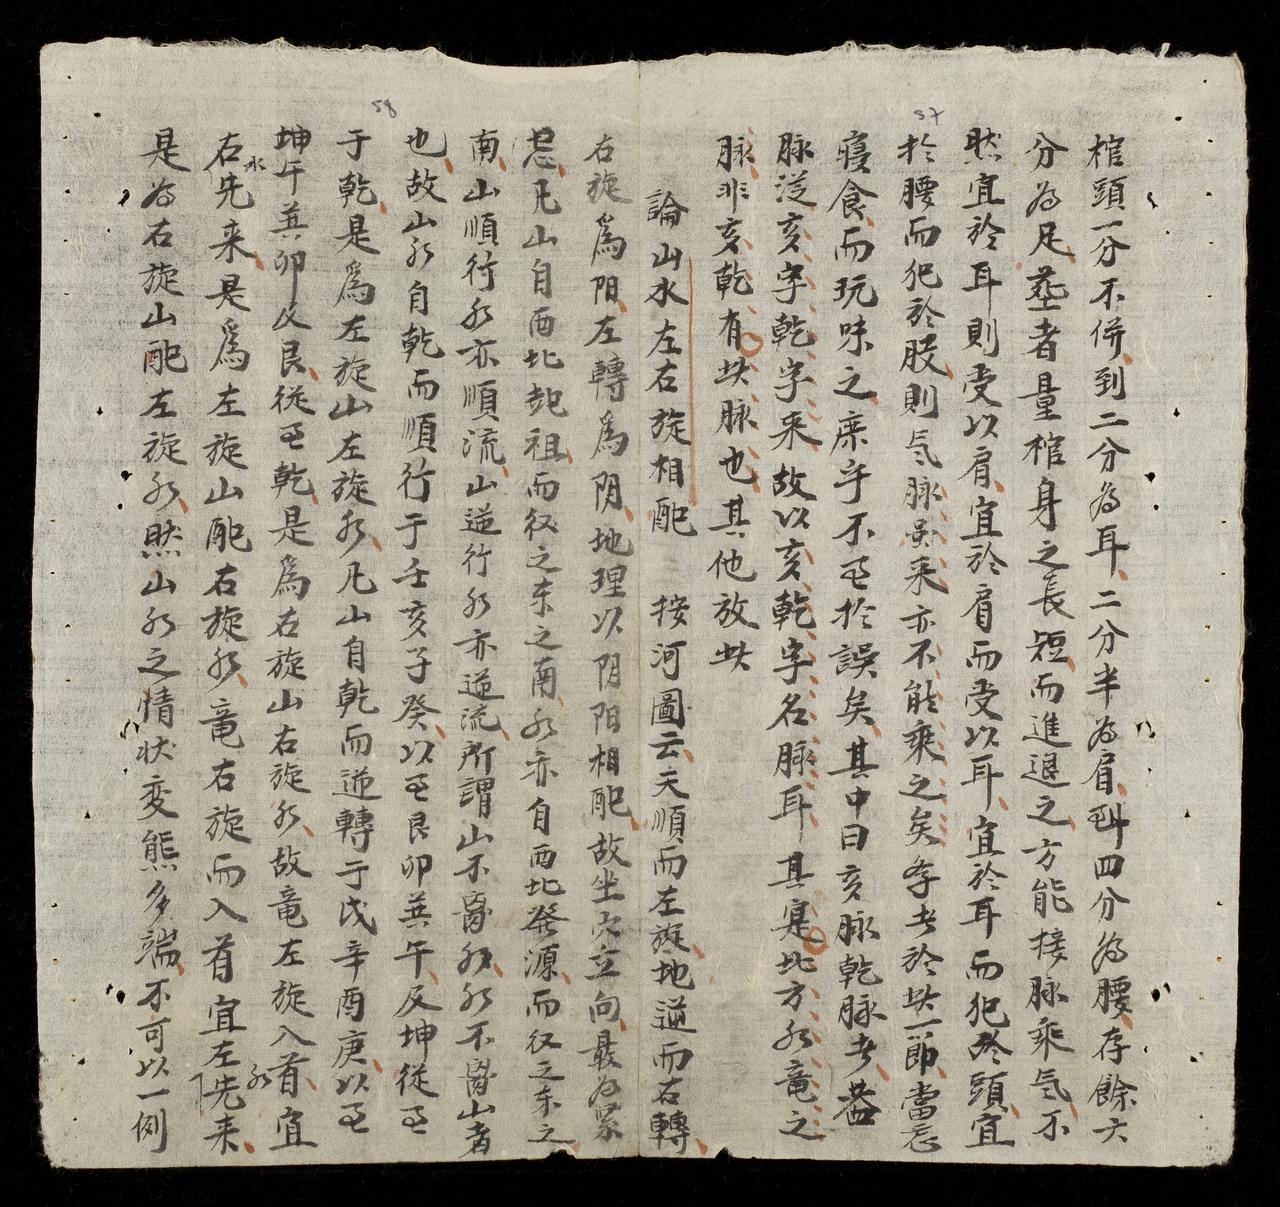 57
棺頭一分不併到二分為耳二分半為肩到四分為腰存餘六
分為足塟者量棺身之長短而進退之方能接脉乘気不
然宜於耳則受以肩宜於肩而受以耳宜於耳而犯於頭宜
於腰而犯於股則気脉虽来亦不能乘之矣学者於此一節當忘
寢食而玩味之庶乎不至於誤矣其中曰亥脉乾脉者盖
脉従亥字乾字来故以亥乾字名脉耳其寔北方水竜之
脉非亥乾有此脉也其他放此
論山水左右旋相配 按河圖云天順而左旋地逆而右轉
58
右旋為陽左轉為阴地理以阴阳相配故坐穴立向最為緊
忌凡山自西北起祖而行之东之南水亦自西北發源而行之东之
南山順行水亦順流山逆行水亦逆流所謂山不离水水不离山者
也故山水自乾而順行于壬亥子癸以至艮卯巽午及坤従至
于乾是為左旋山左旋水凡山自乾而逆轉于戊辛酉庚以至
坤午巽卯及艮従至乾是為右旋山右旋水故竜左旋入首宜
右水先来是為左旋山配右旋水竜右旋而入首宜左水先来
是為右旋山配左旋水然山水之情状变熊多端不可以一例